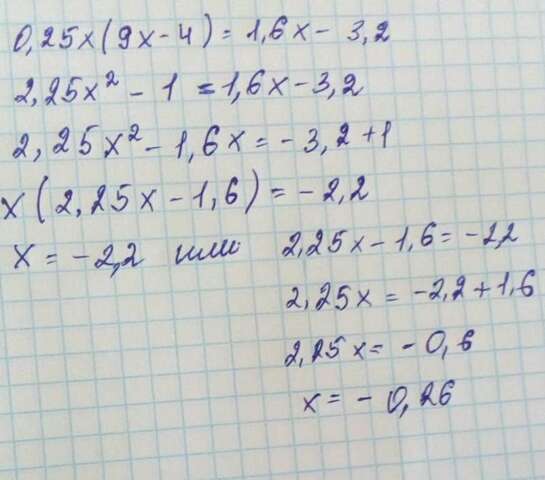 0,25x(9x-4)=1,6x-3,2
2,25x²-1=1,6x-3,2
2,25x²-1,6x=-3,2+1
x(2,25x-1,6)=-2,2
x=-2,2 или 2,25x-1,6=-2,2
2,25x=-2,2+1,6
2,25x=-0,6
x=-0,26